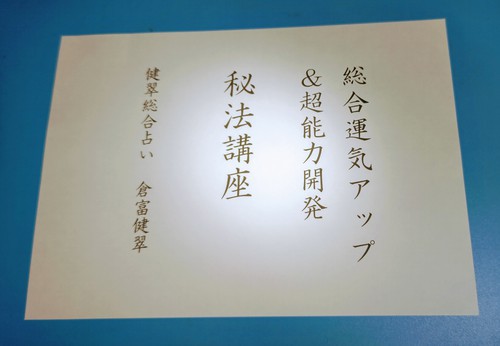 総合運気アップ
&超能力開発
秘法講座
健翠総合占い 倉富健翠